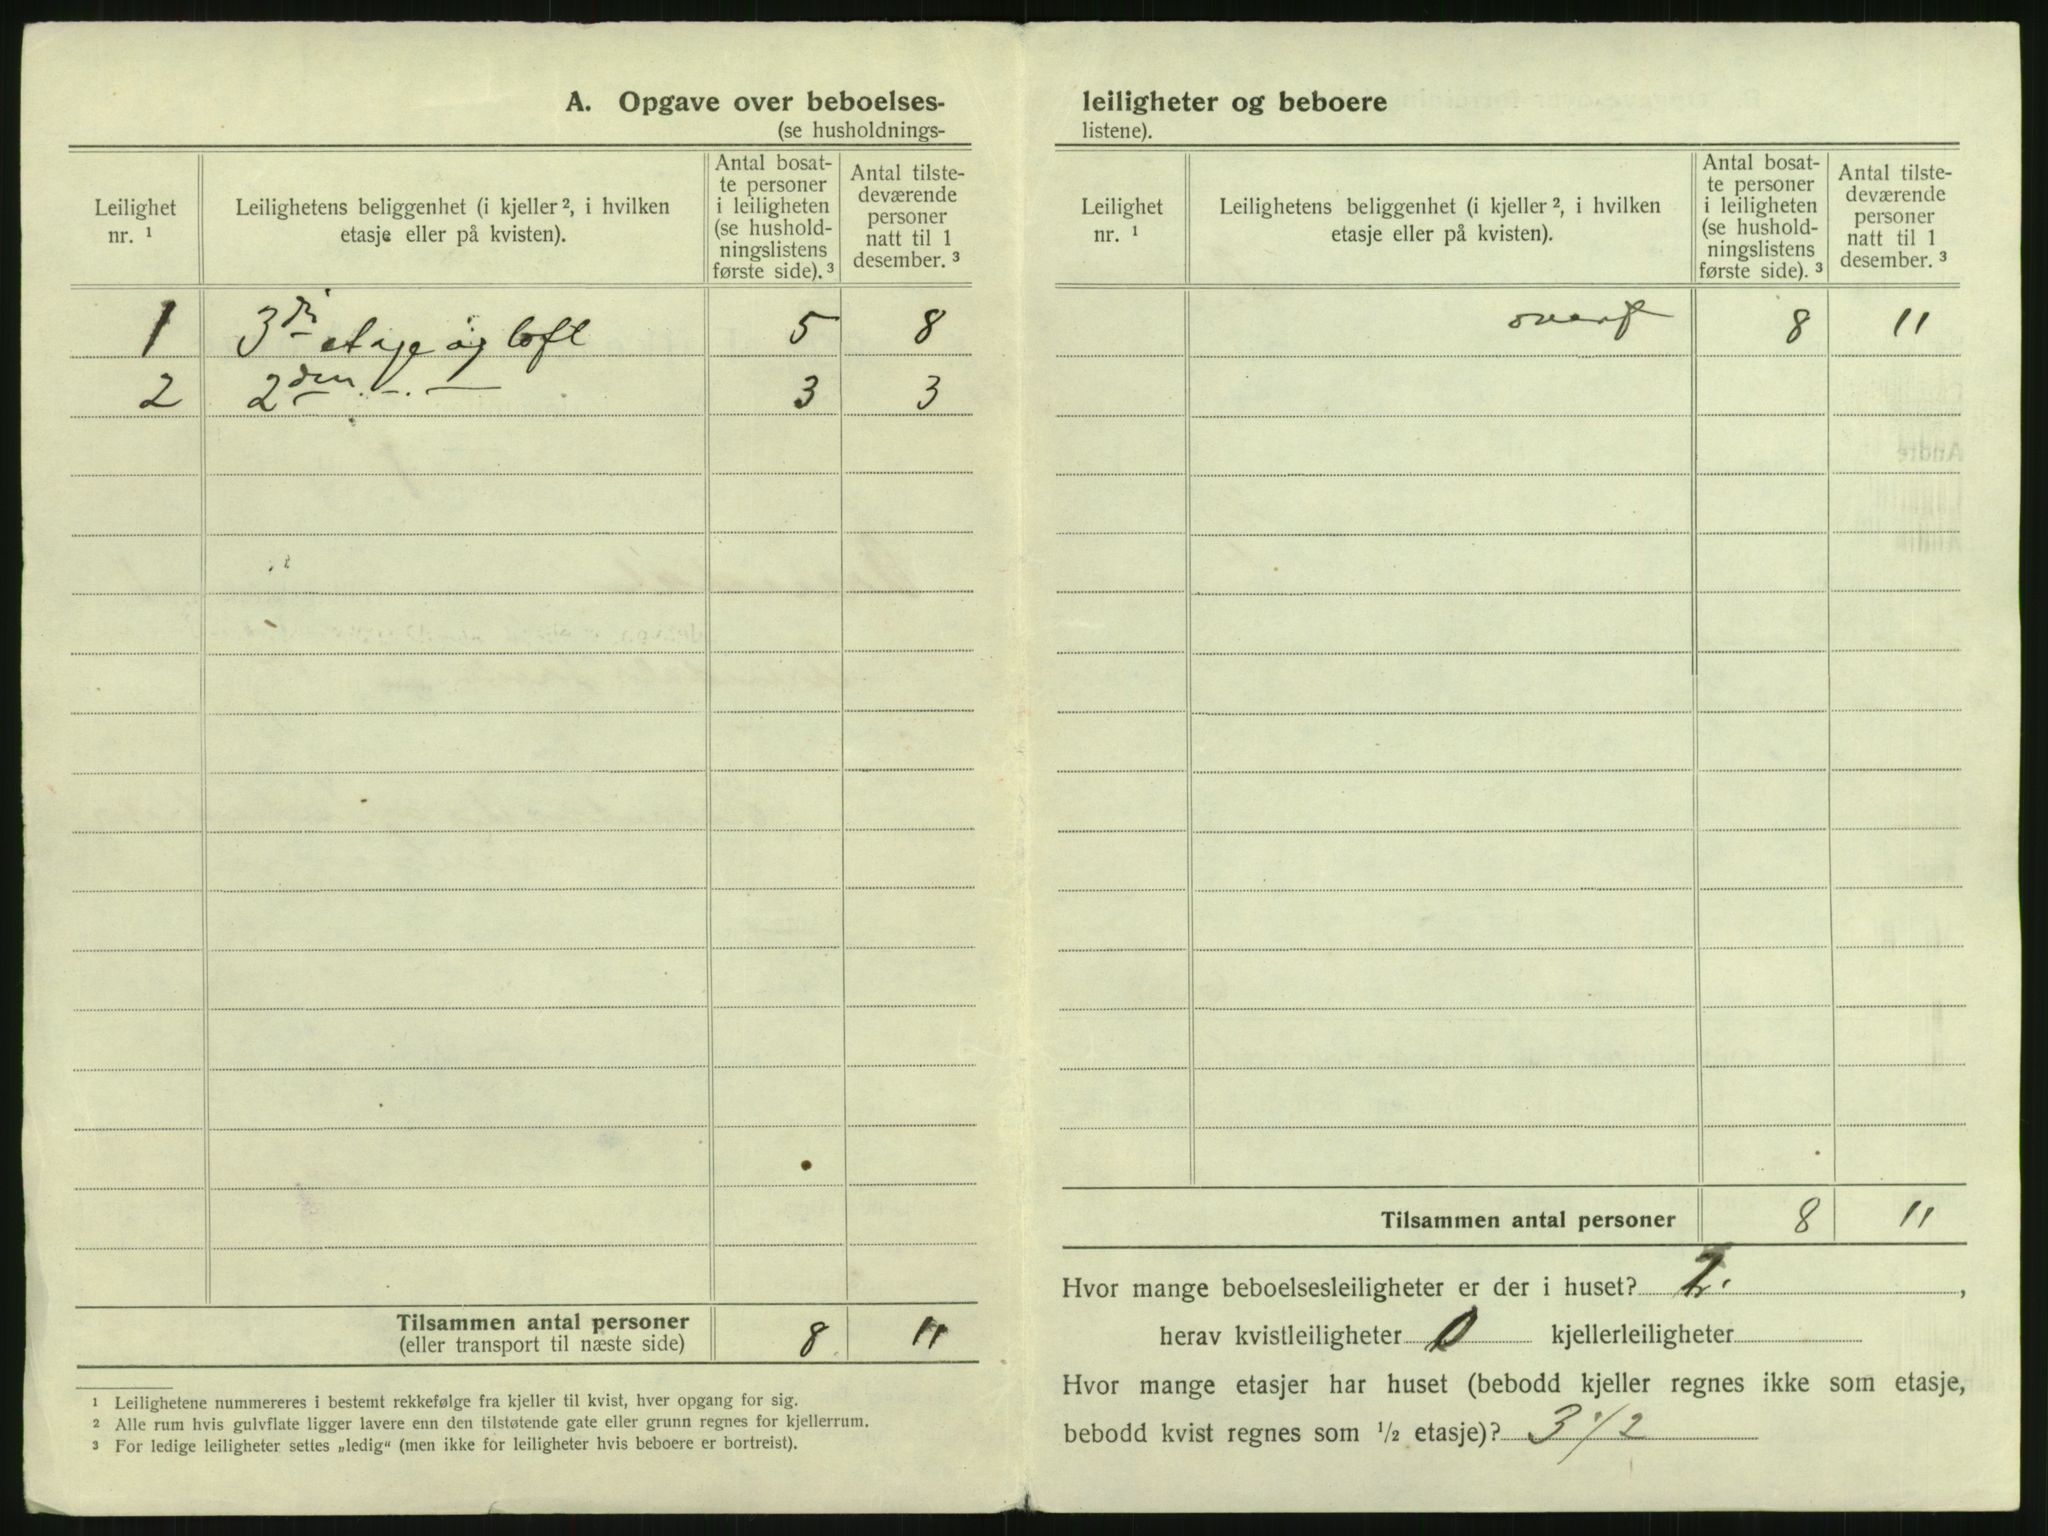 A. Opgave over beboelses-
(se husholdnings-
Leilighet nr. ¹
Leilighetens beliggenhet (i kjeller ², i hvilken etasje eller på kvisten).
Antal bosatte personer i leiligheten (se husholdningslistens første side). ³
Antal tilstedeværende personer natt til 1 desember. ³
1 3di etage og loft 5 8
2 2den - " - 3 3
Tilsammen antal personer
(eller transport til næste side) 8 11
¹ Leilighetene nummereres i bestemt rekkefølge fra kjeller til kvist, hver opgang for sig.
² Alle rum hvis gulvflate ligger lavere enn den tilstøtende gate eller grunn regnes for kjellerrum.
³ For ledige leiligheter settes „ledig“ (men ikke for leiligheter hvis beboere er bortreist).
leiligheter og beboere
listene).
Leilighet nr. ¹
Leilighetens beliggenhet (i kjeller ², i hvilken etasje eller på kvisten).
Antal bosatte personer i leiligheten (se husholdningslistens første side). ³
Antal tilstedeværende personer natt til 1 desember. ³
overf 8 11
Tilsammen antal personer 8 11
Hvor mange beboelsesleiligheter er der i huset? 2. ,
herav kvistleiligheter 0 kjellerleiligheter
Hvor mange etasjer har huset (bebodd kjeller regnes ikke som etasje,
bebodd kvist regnes som ½ etasje)? 3 1/2